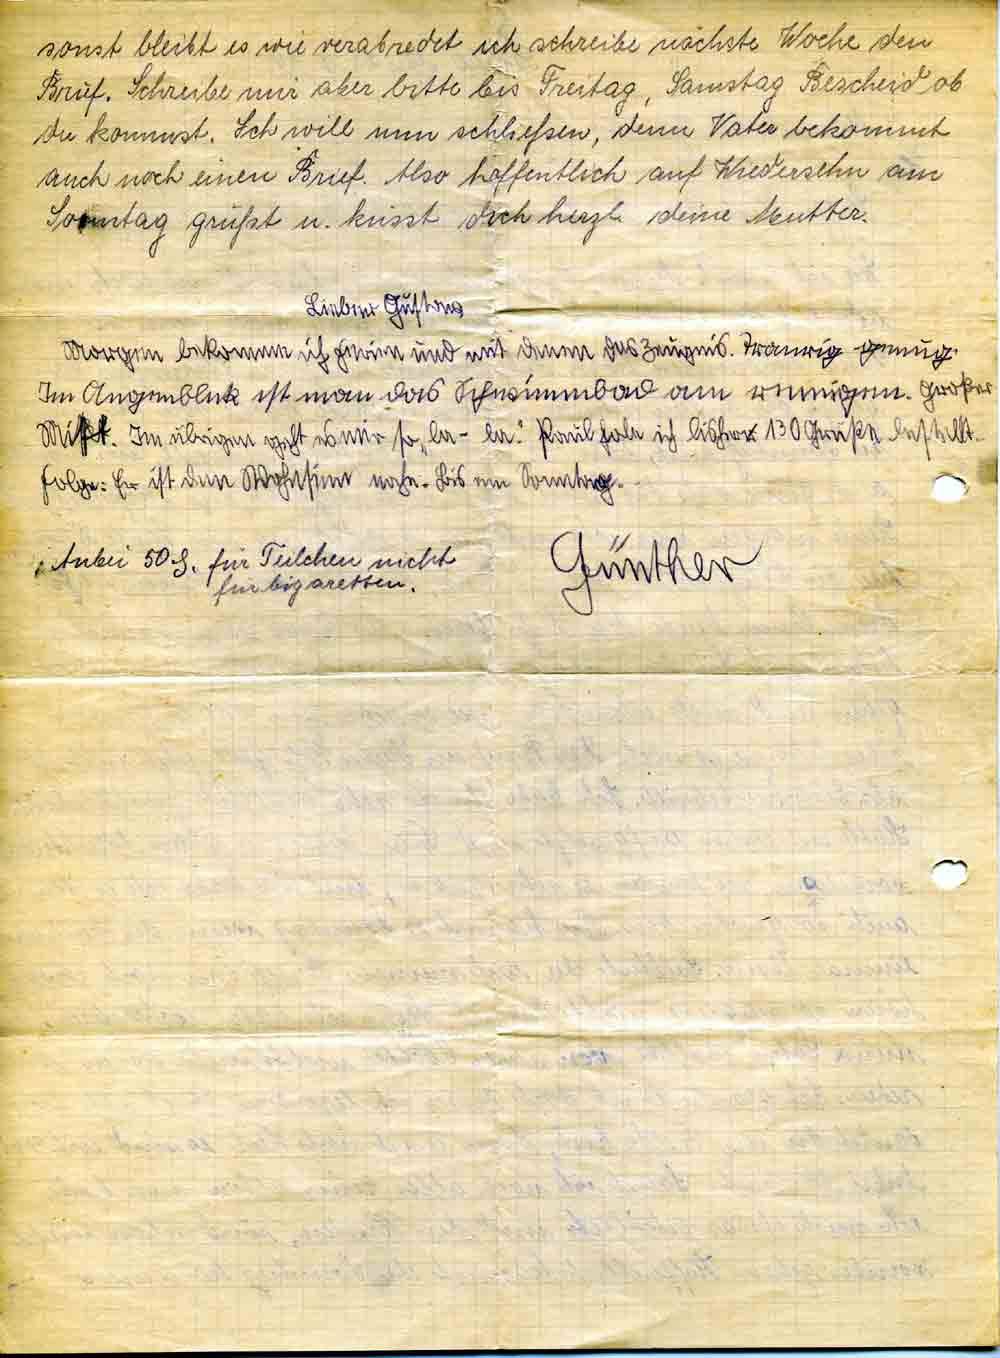 sonst bleibt es wie verabredet ich schreibe nächste Woche den
Brief. Schreibe mir aber bitte bis Freitag, Samstag Bescheid ob
du kommst. Ich will nun schließen, denn Vater bekommt
auch noch einen Brief. Also hoffentlich auf Wiedersehn am
Sonntag grüßt u. küsst dich herzl. deine Mutter.
Lieber Gustav
Morgen bekomme ich Ferien und mit denen das Zeugnis. Traurig genug.
Im Augenblick ist man das Schwimmbad am reinigen. Großer
Mist. Im übrigen geht es mir so „la-la." Paul habe ich bisher 130 Grüße bestellt.
Folge: Er ist dem Wahnsinn nahe. Bis am Sonntag.
Günther
Anbei 50 ₰. für Teilchen nicht
für Cigaretten.